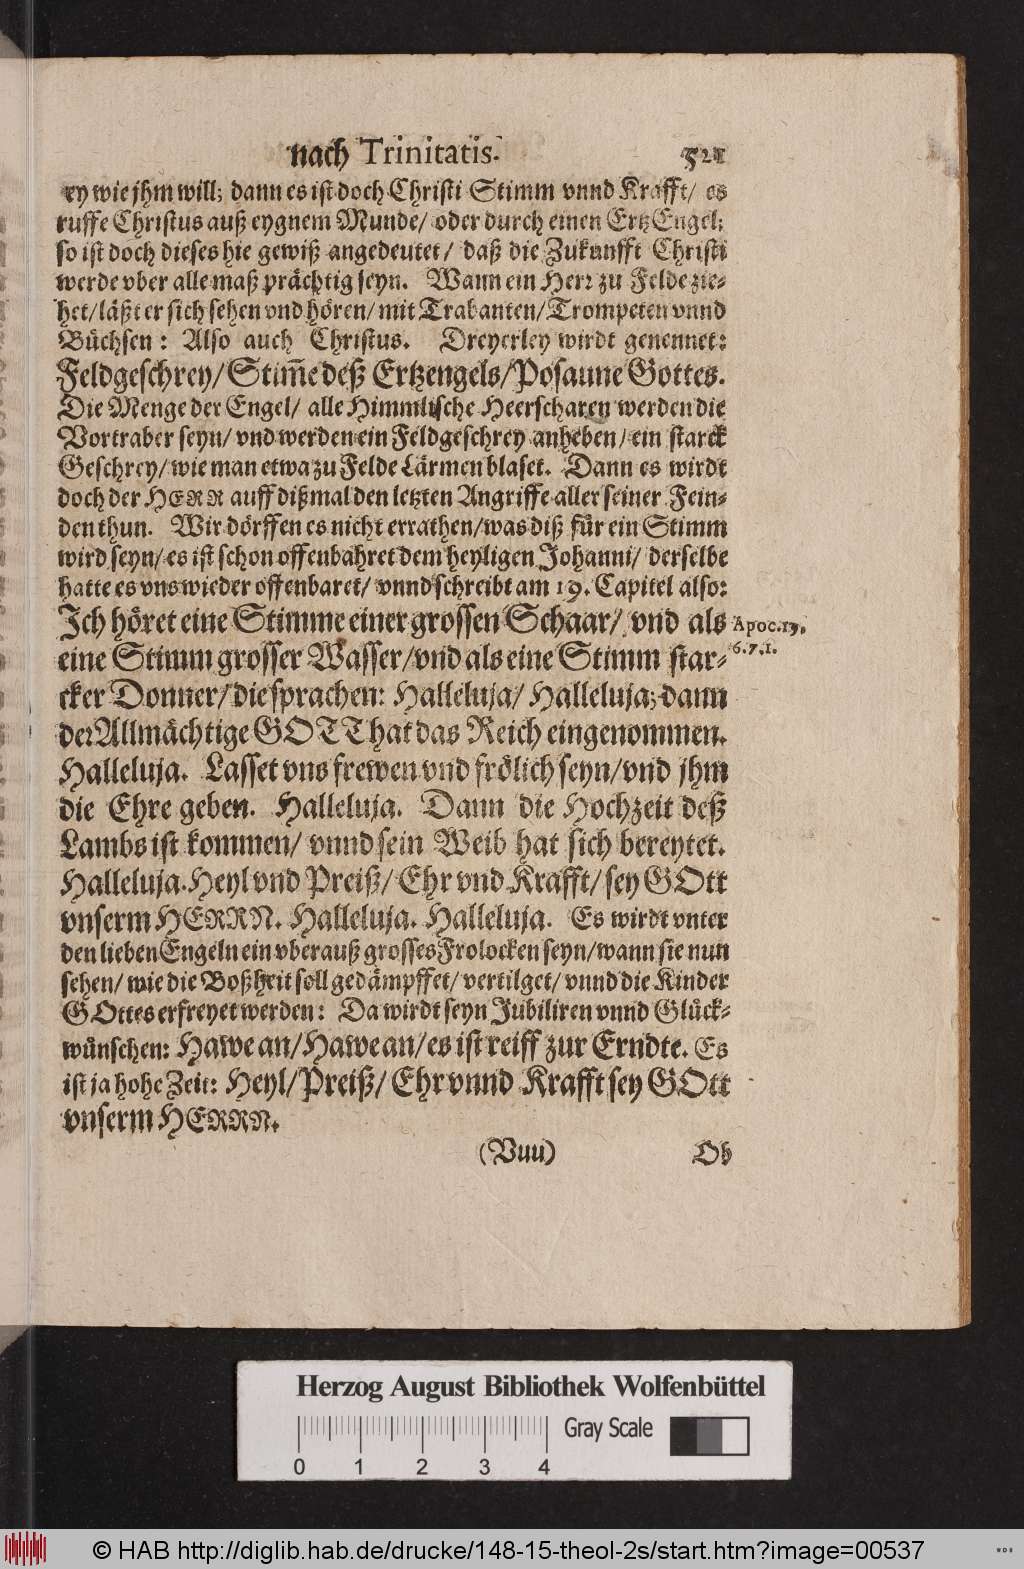 nach Trinitatis. 521
rey wie jhm will; dann es ist doch Christi Stimm vnnd Krafft/ es
ruffe Christus auß eygnem Munde/ oder durch einen ErtzEngel;
so ist doch dieses hie gewiß angedeutet/ daß die Zukunfft Christi
werde vber alle maß prächtig seyn. Wann ein Herr zu Felde zie-
het/ läßt er sich sehen vnd hören/ mit Trabanten/ Trompeten vnnd
Büchsen: Also auch Christus. Dreyerley wirdt genennet:
Feldgeschrey/ Stim̃e deß Ertzengels/ Posaune Gottes.
Die Menge der Engel/ alle Himmlische Heerscharen werden die
Vortraber seyn/ vnd werden ein Feldgeschrey anheben/ ein starck
Geschrey/ wie man etwa zu Felde Lärmen blaset. Dann es wirdt
doch der HERR auff dißmal den letzten Angriffe aller seiner Fein-
den thun. Wir dörffen es nicht errathen/ was diß für ein Stimm
wird seyn/ es ist schon offenbahret dem heyligen Johanni/ derselbe
hatte es vns wieder offenbaret/ vnnd schreibt am 19. Capitel also:
Ich höret eine Stimme einer grossen Schaar/ vnd als
Apoc. 19.
eine Stimm grosser Wasser/ vnd als eine Stimm star-
6. 7. 1.
cker Donner/ die sprachen: Halleluja/ Halleluja; dann
der Allmächtige GOTT hat das Reich eingenommen.
Halleluja. Lasset vns frewen vnd frölich seyn/ vnd jhm
die Ehre geben. Halleluja. Dann die Hochzeit deß
Lambs ist kommen/ vnnd sein Weib hat sich bereytet.
Halleluja. Heyl vnd Preiß/ Ehr vnd Krafft/ sey GOtt
vnserm HERRN. Halleluja. Halleluja. Es wirdt vnter
den lieben Engeln ein vberauß grosses Frolocken seyn/ wann sie nun
sehen/ wie die Boßheit soll gedämpffet/ vertilget/ vnnd die Kinder
GOttes erfreyet werden: Da wirdt seyn Jubiliren vnnd Glück-
wünschen: Hawe an/ Hawe an/ es ist reiff zur Erndte. Es
ist ja hohe Zeit: Heyl/ Preiß/ Ehr vnnd Krafft sey GOtt
vnserm HERRN.
(Vuu) Ob
Herzog August Bibliothek Wolfenbüttel
Gray Scale
0 1 2 3 4
© HAB http://diglib.hab.de/drucke/148-15-theol-2s/start.htm?image=00537